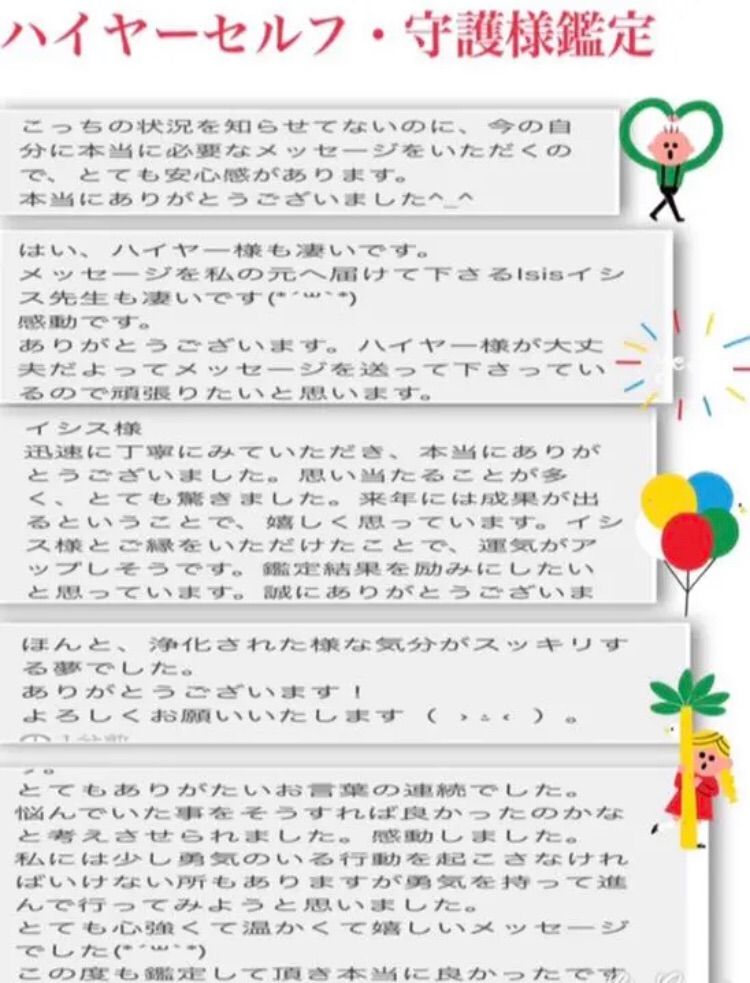 ハイヤーセルフ・守護様鑑定
こっちの状況を知らせてないのに、今の自
分に本当に必要なメッセージをいただくの
で、とても安心感があります。
本当にありがとうございました^_^
はい、ハイヤー様も凄いです。
メッセージを私の元へ届けて下さるIsisイシ
ス先生も凄いです(*´꒳`*)
感動です。
ありがとうございます。ハイヤー様が大丈
夫だよってメッセージを送って下さってい
るので頑張りたいと思います。
イシス様
迅速に丁寧にみていただき、本当にありが
とうございました。思い当たることが多
く、とても驚きました。来年には成果が出
るということで、嬉しく思っています。イシ
ス様とご縁をいただけたことで、運気がア
ップしそうです。鑑定結果を励みにしたい
と思っています。誠にありがとうございま
ほんと、浄化された様な気分がスッキリす
る夢でした。
ありがとうございます！
よろしくお願いいたします（ ›ㅿ‹ ）。
とてもありがたいお言葉の連続でした。
悩んでいた事をそうすれば良かったのかな
と考えさせられました。感動しました。
私には少し勇気のいる行動を起こさなけれ
ばいけない所もありますが勇気を持って進
んで行ってみようと思いました。
とても心強くて温かくて嬉しいメッセージ
でした(*´꒳`*)
この度も鑑定して頂き本当に良かったです